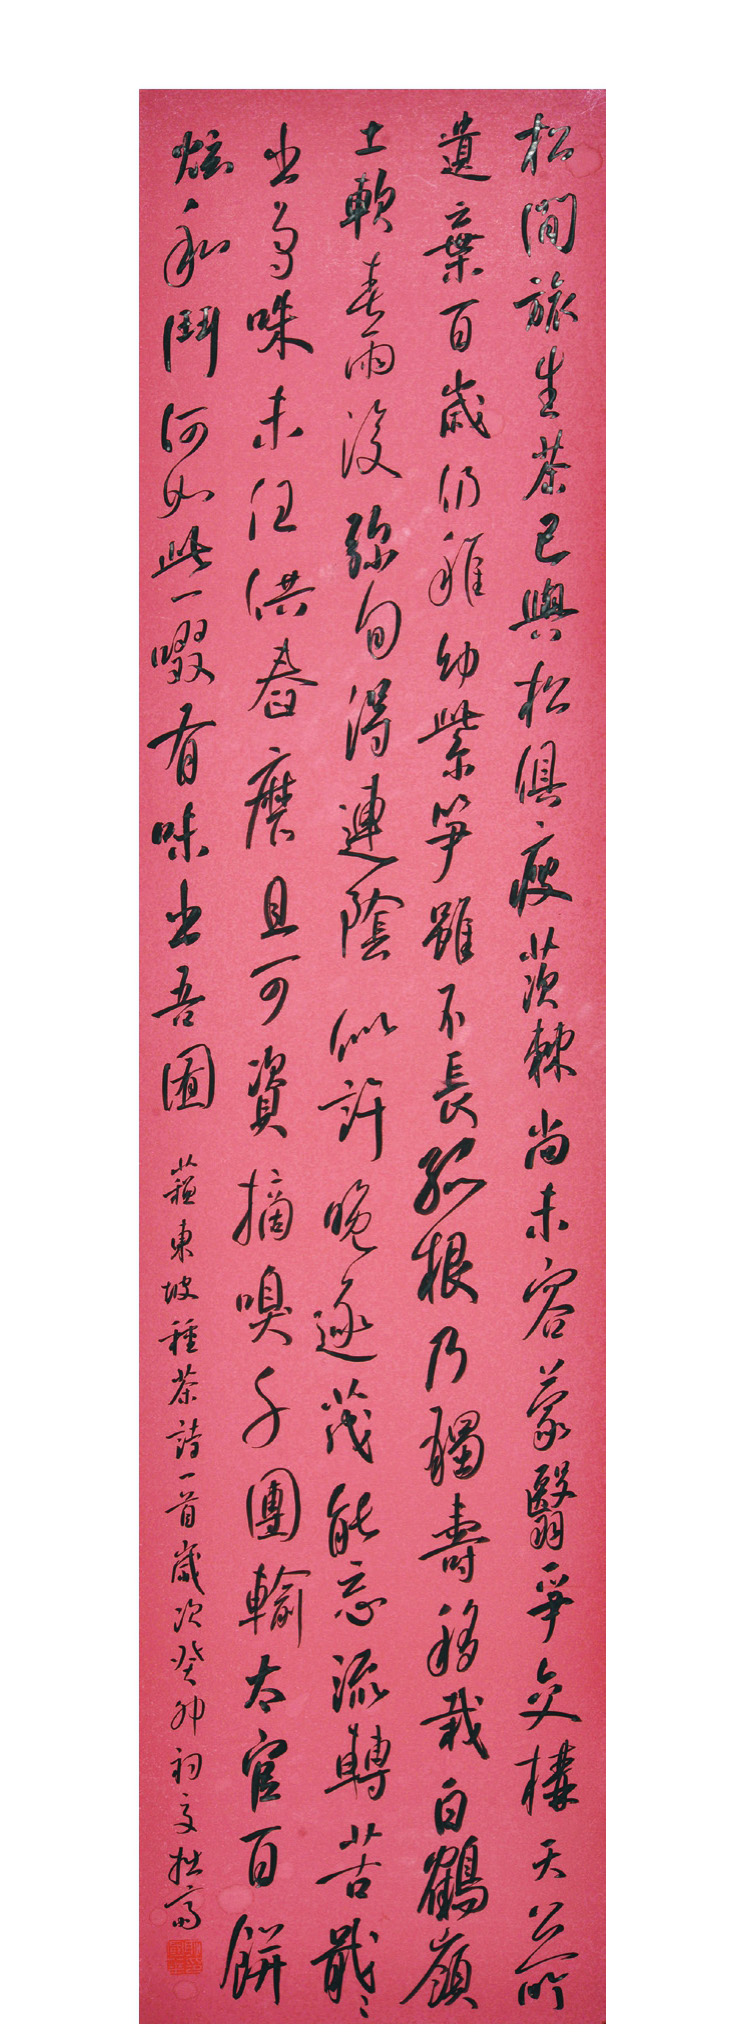 松間旅生茶已與松俱瘦茨棘尚未容蒙翳爭交構天公所
遺棄百歲仍稚幼紫笋雖不長孤根乃獨壽移栽白鶴嶺
土軟春雨後弥旬得連陰似許晚遂茂能忘流轉苦戢〻
出鳥咮未任供舂磨且可資摘嗅千團輸太官百餅
炫私鬥何如此一啜有味出吾囿
蘇東坡種茶詩一首歲次癸卯初夏拙齋